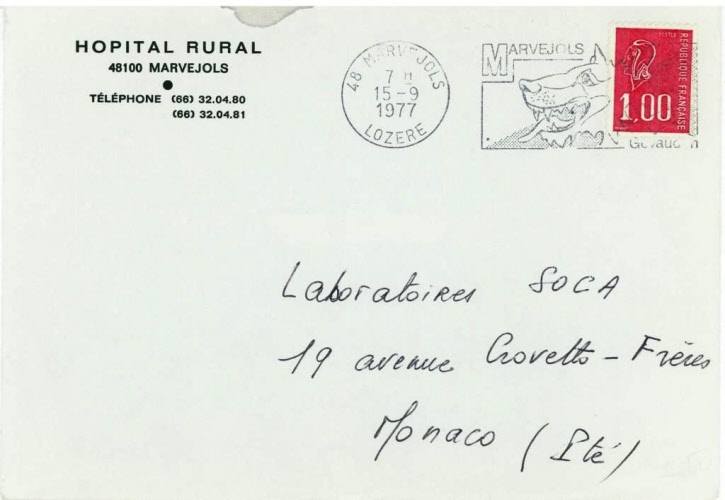 HOPITAL RURAL
48100 MARVEJOLS
TÉLÉPHONE (66) 32.04.80
(66) 32.04.81
48 MARVEJOLS
7 H
15-9
1977
LOZERE
MARVEJOLS
REPUBLIQUE FRANÇAISE
1,00
Laboratoires SOCA
19 avenue Crovetto-Frères
Monaco (Pté)